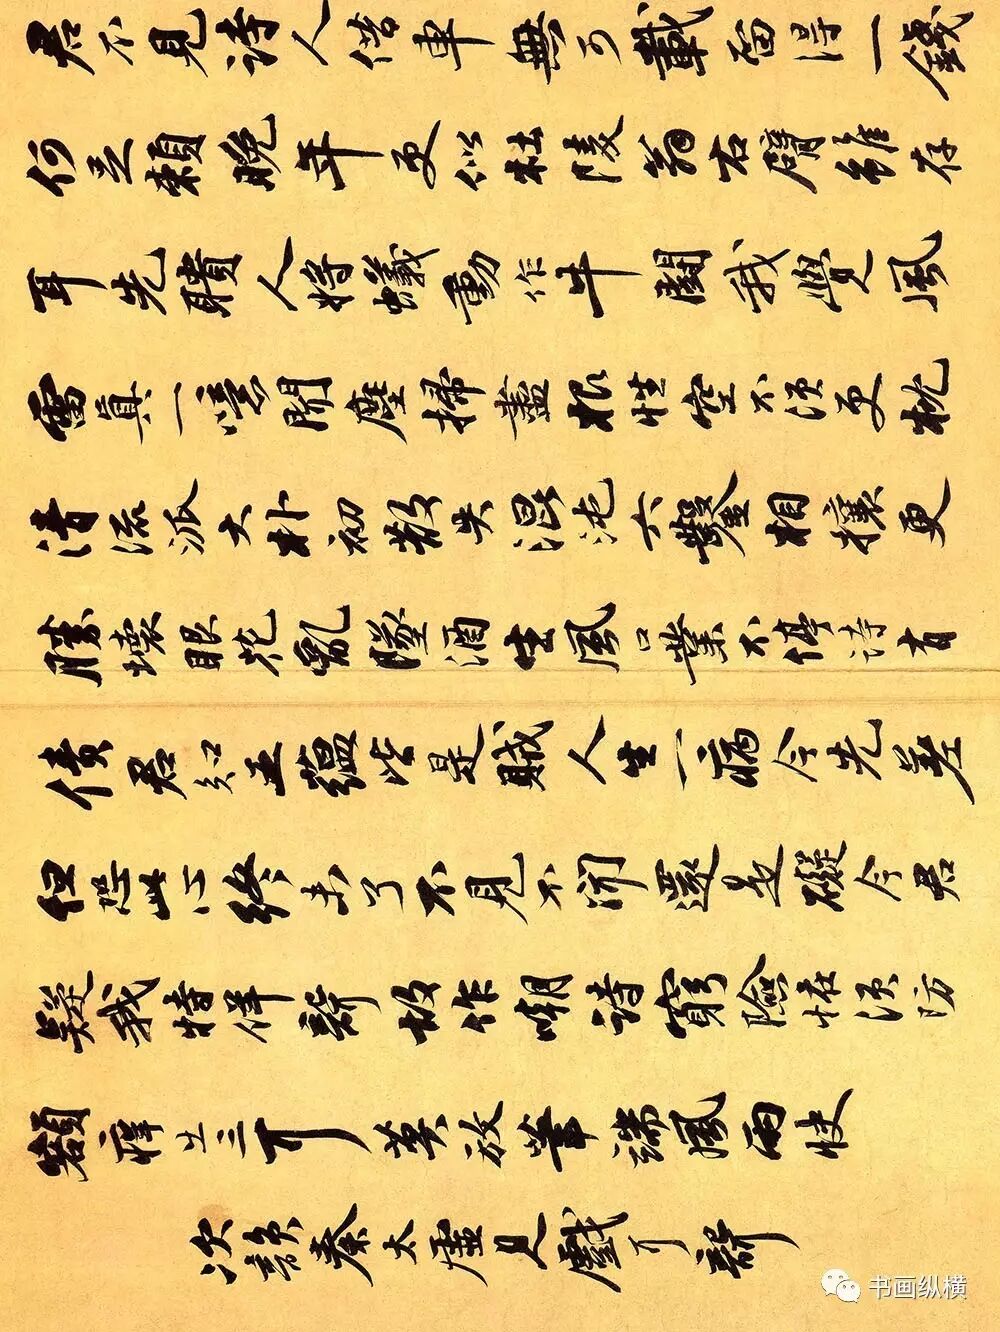 君不見詩人借車無可載留得一錢
何足賴晚年更似杜陵翁右臂雖存
耳先聵人將蟻動作牛鬭我覺風
雷真一噫聞塵掃盡根性空不須更枕
清流派大朴初散失混沌六鑿相攘更
勝壞眼花亂墜酒生風口業不停詩有
債君知五蘊皆是賊人生一病今先差
但恐此心終未了不見不聞還是礙今君
疑我特佯聾故作嘲詩窮險怪須防
額癢出三耳莫放筆端風雨快
次韻秦太虛見戲耳聾
书画纵横